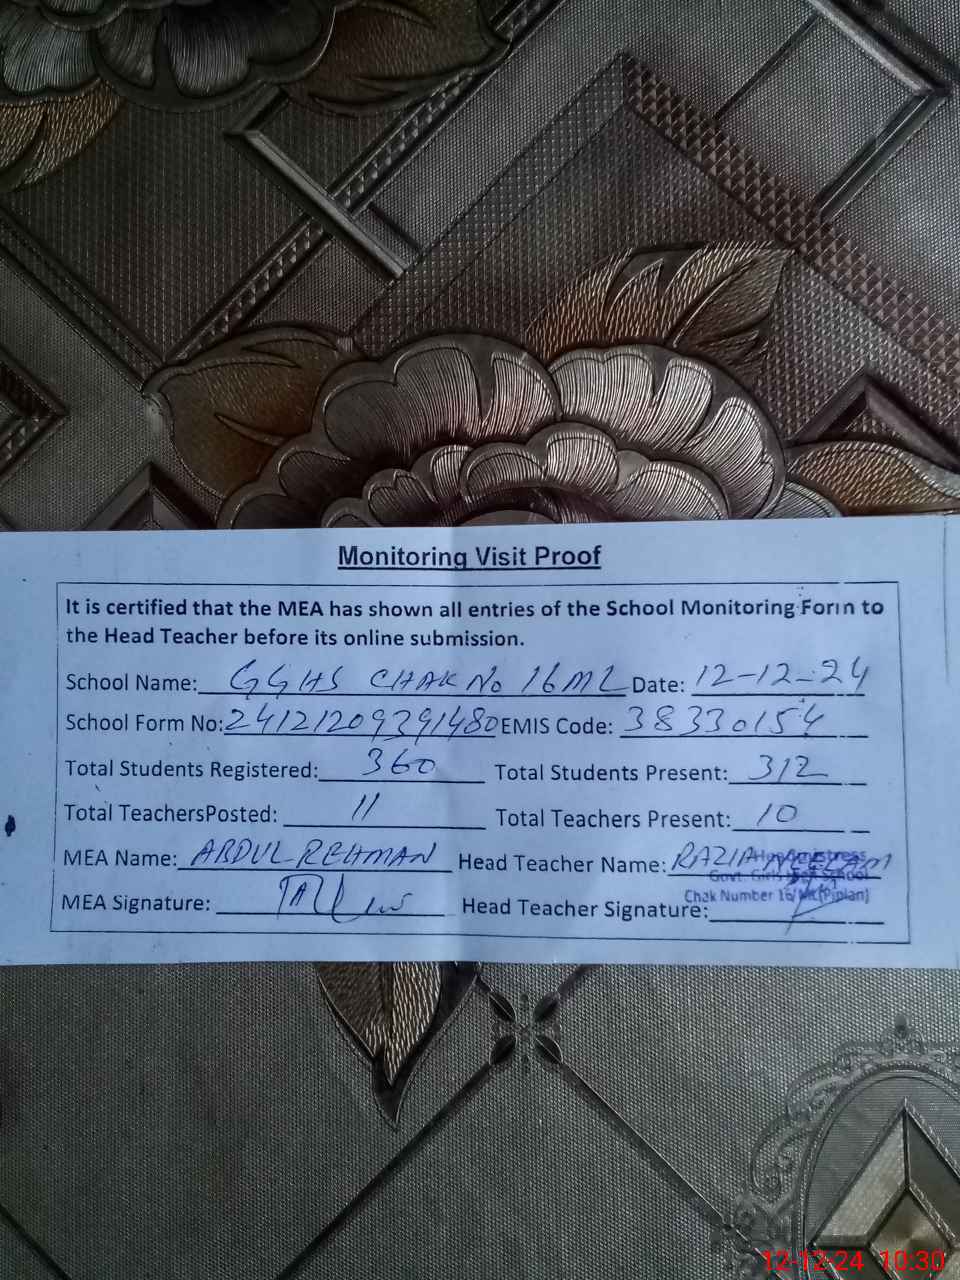 Monitoring Visit Proof
It is certified that the MEA has shown all entries of the School Monitoring Form to
the Head Teacher before its online submission.
School Name: GGHS CHAK No 16ML Date: 12-12-24
School Form No: 24121209391480 EMIS Code: 38330154
Total Students Registered: 360 Total Students Present: 312
Total TeachersPosted: 11 Total Teachers Present: 10
MEA Name: ABDUL-REHMAN Head Teacher Name: RAZIA NEELAM
Headmistress
Govt. Girls High School
Chak Number 16/ML(Piplan)
MEA Signature: Head Teacher Signature:
12-12-24 10:30